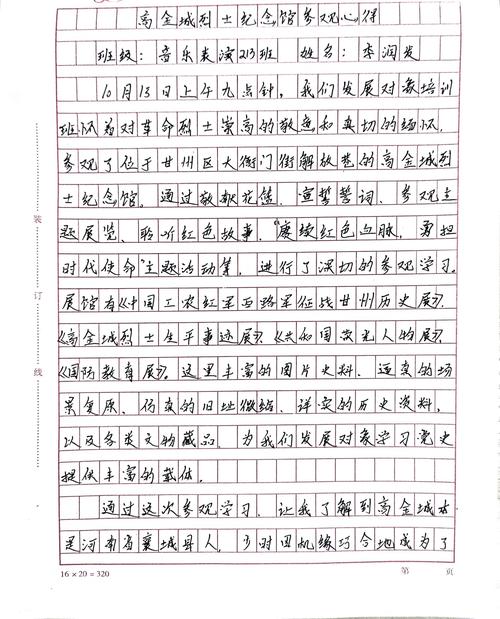 高金城烈士纪念馆参观心得
班级：音乐表演213班 姓名：李润发
10月13日上午九点钟，我们发展对象培训
班怀着对革命烈士崇高的敬意和真切的缅怀，
参观了位于甘州区大衙门街解放巷的高金城烈
士纪念馆。通过敬献花篮、宣誓誓词、参观主
题展览、聆听红色故事、“赓续红色血脉，勇担
时代使命”主题活动等，进行了深切的参观学习。
展馆有《中国工农红军西路军征战甘州历史展》、
《高金城烈士生平事迹展》、《共和国发光人的展》、
《国防教育展》。这里丰富的图片史料、逼真的场
景复原、仿真的旧址微缩、详实的历史资料，
以及各类文物藏品，为我们发展对象学习党史
提供丰富的载体。
通过这次参观学习，让我了解到高金城本
是河南省襄城县人，少时因机缘巧合地成为了
装
订
线
16×20=320
第 页